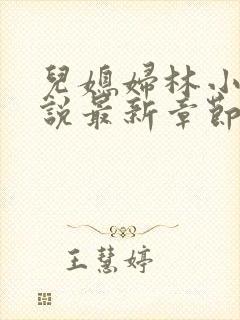 兒媳婦林小
說最新章節
王慧婷